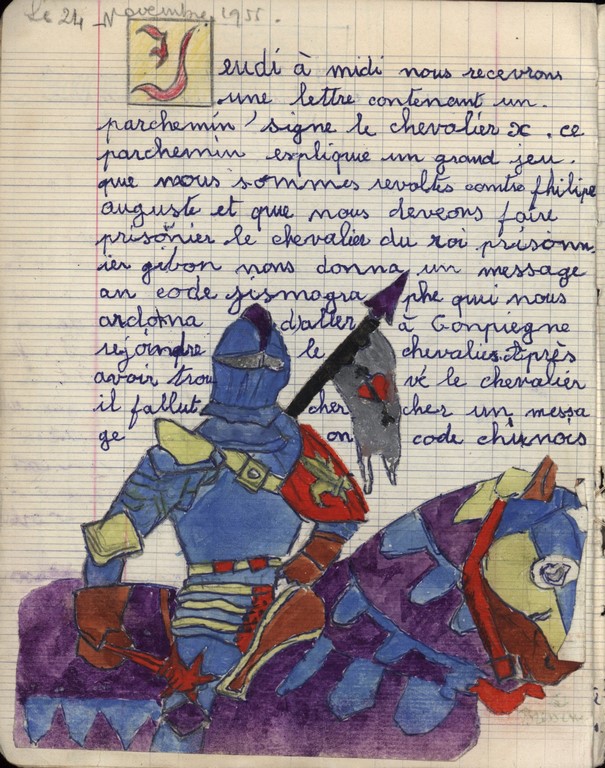 Le 24 Novembre 1955.
Jeudi à midi nous recevrons
une lettre contenant un.
parchemin signe le chevalier x. ce
parchemin explique un grand jeu.
que nous sommes revoltés contre philipe
auguste et que nous deveons faire
prisonier le chevalier du roi prisonn-
ier gibon nous donna un message
an code sismogra phe qui nous
ardonna d'aller à Conpiegne
rejoindre le chevalier. Après
avoir trou vé le chevalier
il fallut cher cher un messa
ge on code chinois